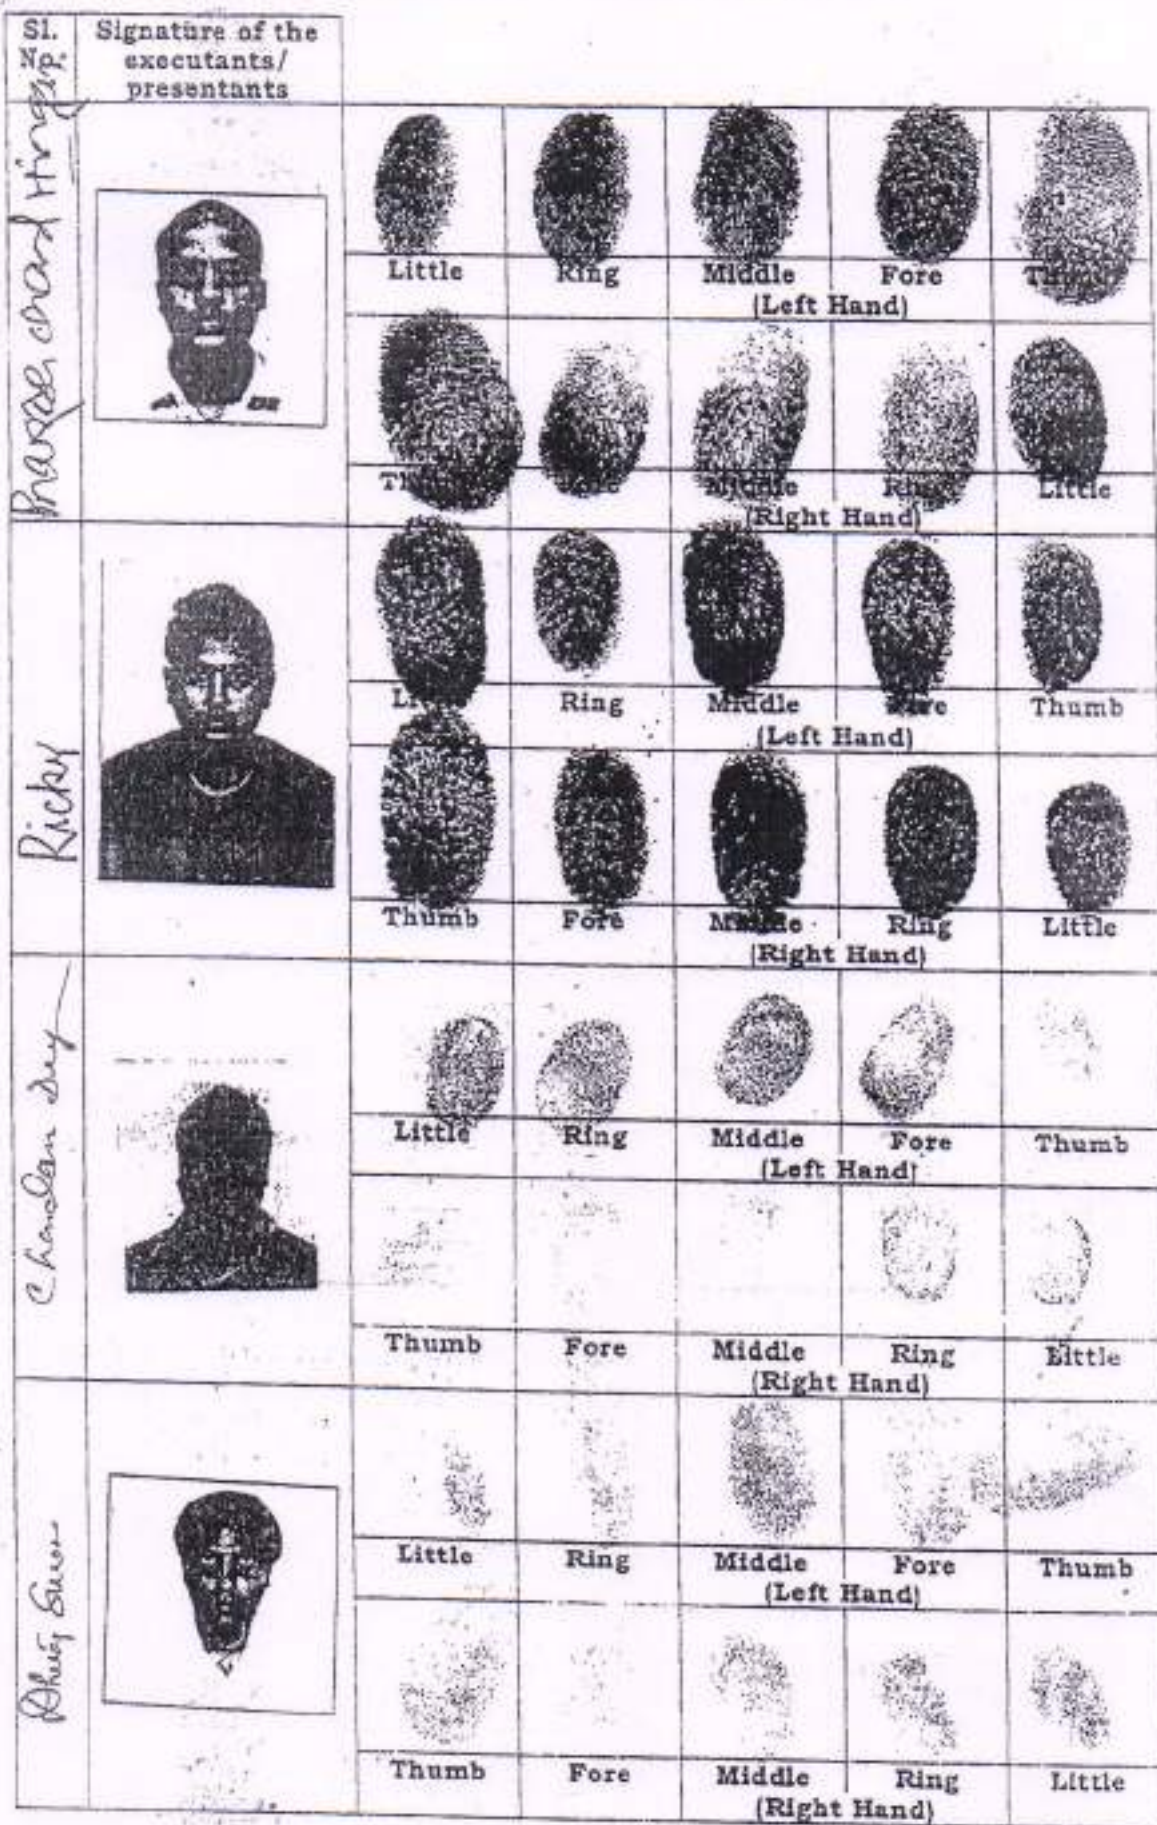 Sl.
No.
Signature of the
executants/
presentants
chand
Little Ring Middle Fore Thumb
(Left Hand)
Thumb Fore Middle Ring Little
(Right Hand)
Ricky
Little Ring Middle Fore Thumb
(Left Hand)
Thumb Fore Middle Ring Little
(Right Hand)
Chandan Dey
Little Ring Middle Fore Thumb
(Left Hand)
Thumb Fore Middle Ring Little
(Right Hand)
Little Ring Middle Fore Thumb
(Left Hand)
Thumb Fore Middle Ring Little
(Right Hand)